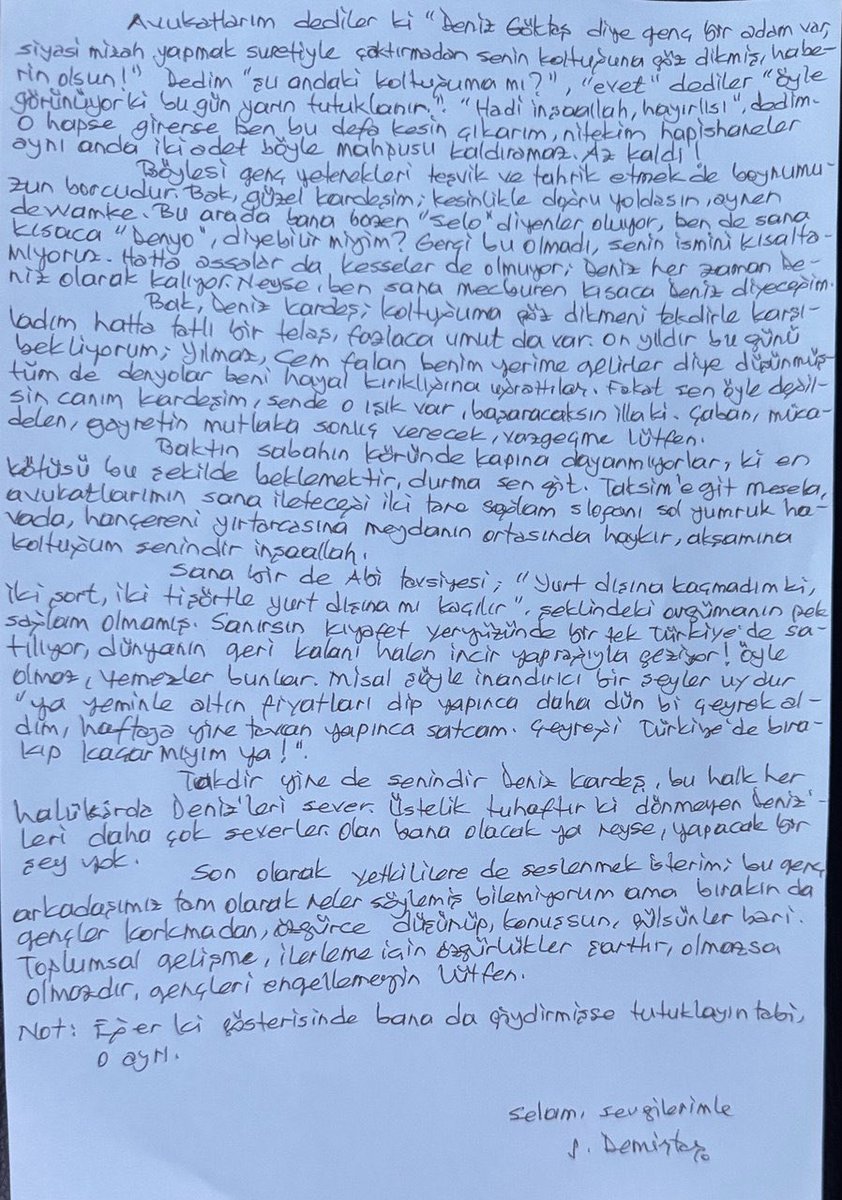 Avukatlarım dediler ki "Deniz Göktaş diye genç bir adam var,
siyasi mizah yapmak suretiyle çaktırmadan senin koltuğuna göz dikmiş, habe-
rin olsun!" Dedim "şu andaki koltuğuma mı?", "evet" dediler "öyle
görünüyor ki bu gün yarın tutuklanır." "Hadi inşaallah, hayırlısı", dedim.
O hapse girerse ben bu defa kesin çıkarım, nitekim hapishaneler
aynı anda iki adet böyle mahpusu kaldıramaz. Az kaldı!
Böylesi genç yetenekleri teşvik ve tahrik etmek de boynumu-
zun borcudur. Bak, güzel kardeşim; kesinlikle doğru yoldasın, aynen
dewamke. Bu arada bana bazen "Selo" diyenler oluyor, ben de sana
kısaca "Denyo", diyebilir miyim? Gerçi bu olmadı, senin ismini kısalta-
mıyoruz. Hatta assalar da kesseler de olmuyor; Deniz her zaman De-
niz olarak kalıyor. Neyse, ben sana mecburen kısaca Deniz diyeceğim.
Bak, Deniz kardeş; koltuğuma göz dikmeni takdirle karşı-
ladım hatta tatlı bir telaş, fazlaca umut da var. On yıldır bu günü
bekliyorum; Yılmaz, Cem falan benim yerime gelirler diye düşünmüş-
tüm de denyolar beni hayal kırıklığına uğrattılar. Fakat sen öyle değil-
sin canım kardeşim, sende o ışık var, başaracaksın illaki. Çaban, müca-
delen, gayretin mutlaka sonuç verecek, vazgeçme lütfen.
Baktın sabahın köründe kapına dayanmıyorlar, ki en
kötüsü bu şekilde beklemektir, durma sen git. Taksim'e git mesela,
avukatlarımın sana ileteceği iki tane sağlam sloganı sol yumruk ha-
vada, hançereni yırtarcasına meydanın ortasında haykır, akşamına
koltuğum senindir inşaallah.
Sana bir de Abi tavsiyesi; "Yurt dışına kaçmadım ki,
iki şort, iki tişörtle yurt dışına mı kaçılır", şeklindeki argümanın pek
sağlam olmamış. Sanırsın kıyafet yeryüzünde bir tek Türkiye'de sa-
tılıyor, dünyanın geri kalanı halen incir yaprağıyla geziyor! Öyle
olmaz, yemezler bunlar. Misal şöyle inandırıcı bir şeyler uydur
"ya yeminle altın fiyatları dip yapınca daha dün bi çeyrek al-
dım, haftaya yine tavan yapınca satcam. Çeyreği Türkiye'de bıra-
kıp kaçar mıyım ya!".
Takdir yine de senindir Deniz kardeş, bu halk her
halükârda Deniz'leri sever. Üstelik tuhaftır ki dönmeyen Deniz'-
leri daha çok severler. Olan bana olacak ya neyse, yapacak bir
şey yok.
Son olarak yetkililere de seslenmek isterim; bu genç
arkadaşımız tam olarak neler söylemiş bilemiyorum ama bırakın da
gençler korkmadan, özgürce düşünüp, konuşsun, gülsünler bari.
Toplumsal gelişme, ilerleme için özgürlükler şarttır, olmazsa
olmazdır, gençleri engellemeyin lütfen.
Not: Eğer ki gösterisinde bana da giydirmişse tutuklayın tabi,
o ayrı.
Selam, sevgilerimle
S. Demirtaş